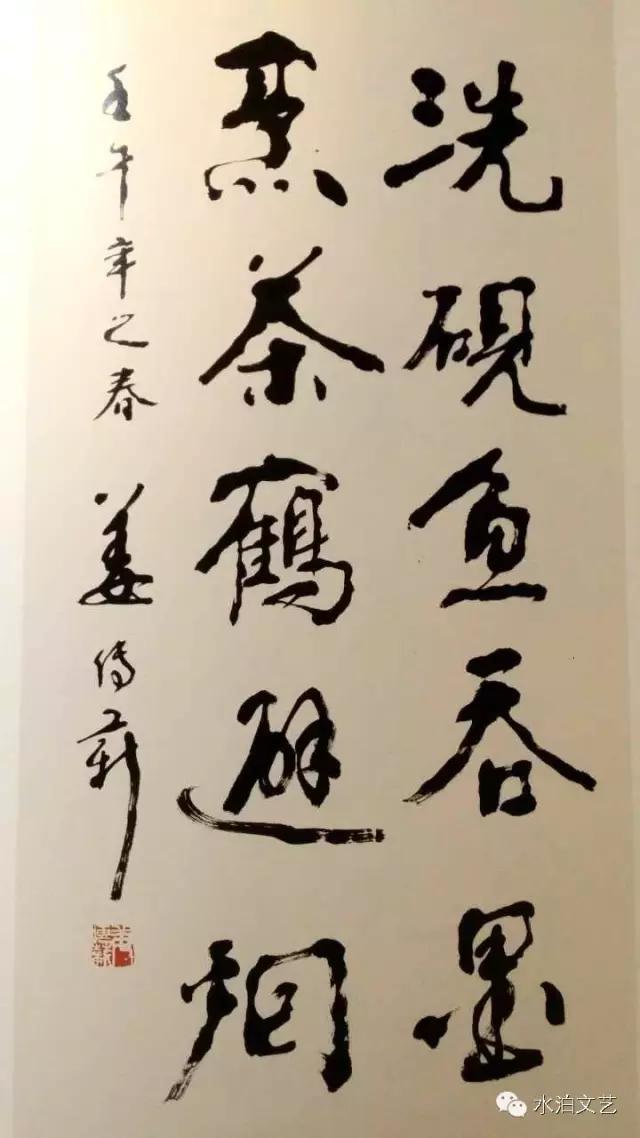 洗砚鱼吞墨
烹茶鹤避烟
壬午年之春
姜传薪
水泊文艺